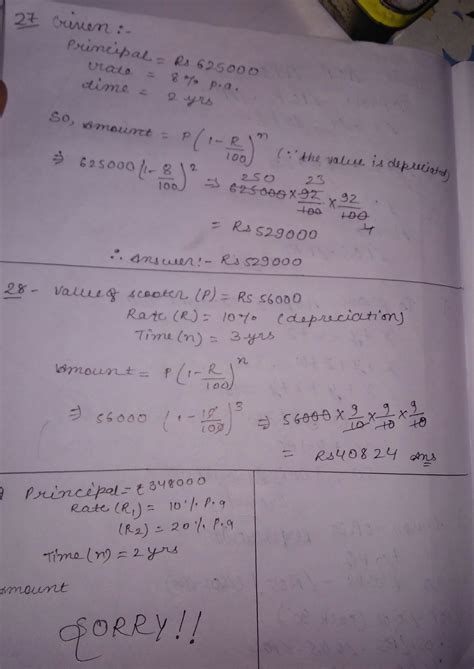 27 Given :-
Principal = Rs 625000
rate = 8% p.a.
time = 2 yrs
So, amount = P(1-R/100)^n (∵ the value is depreciated)
⇒ 625000(1-8/100)^2 ⇒ 625000 250 × 92/100 23 × 92/100 4
= Rs 529000
∴ Answer:- Rs 529000
28- Value of scooter (P) = Rs 56000
Rate (R) = 10% (depreciation)
Time (n) = 3 yrs
Amount = P(1-R/100)^n
⇒ 56000 (1-10/100)^3 ⇒ 56000 × 9/10 × 9/10 × 9/10
= Rs 40824 Ans
Principal = ₹ 348000
Rate (R1) = 10% P.a
(R2) = 20% P.a
Time (n) = 2 yrs
amount
SORRY!!